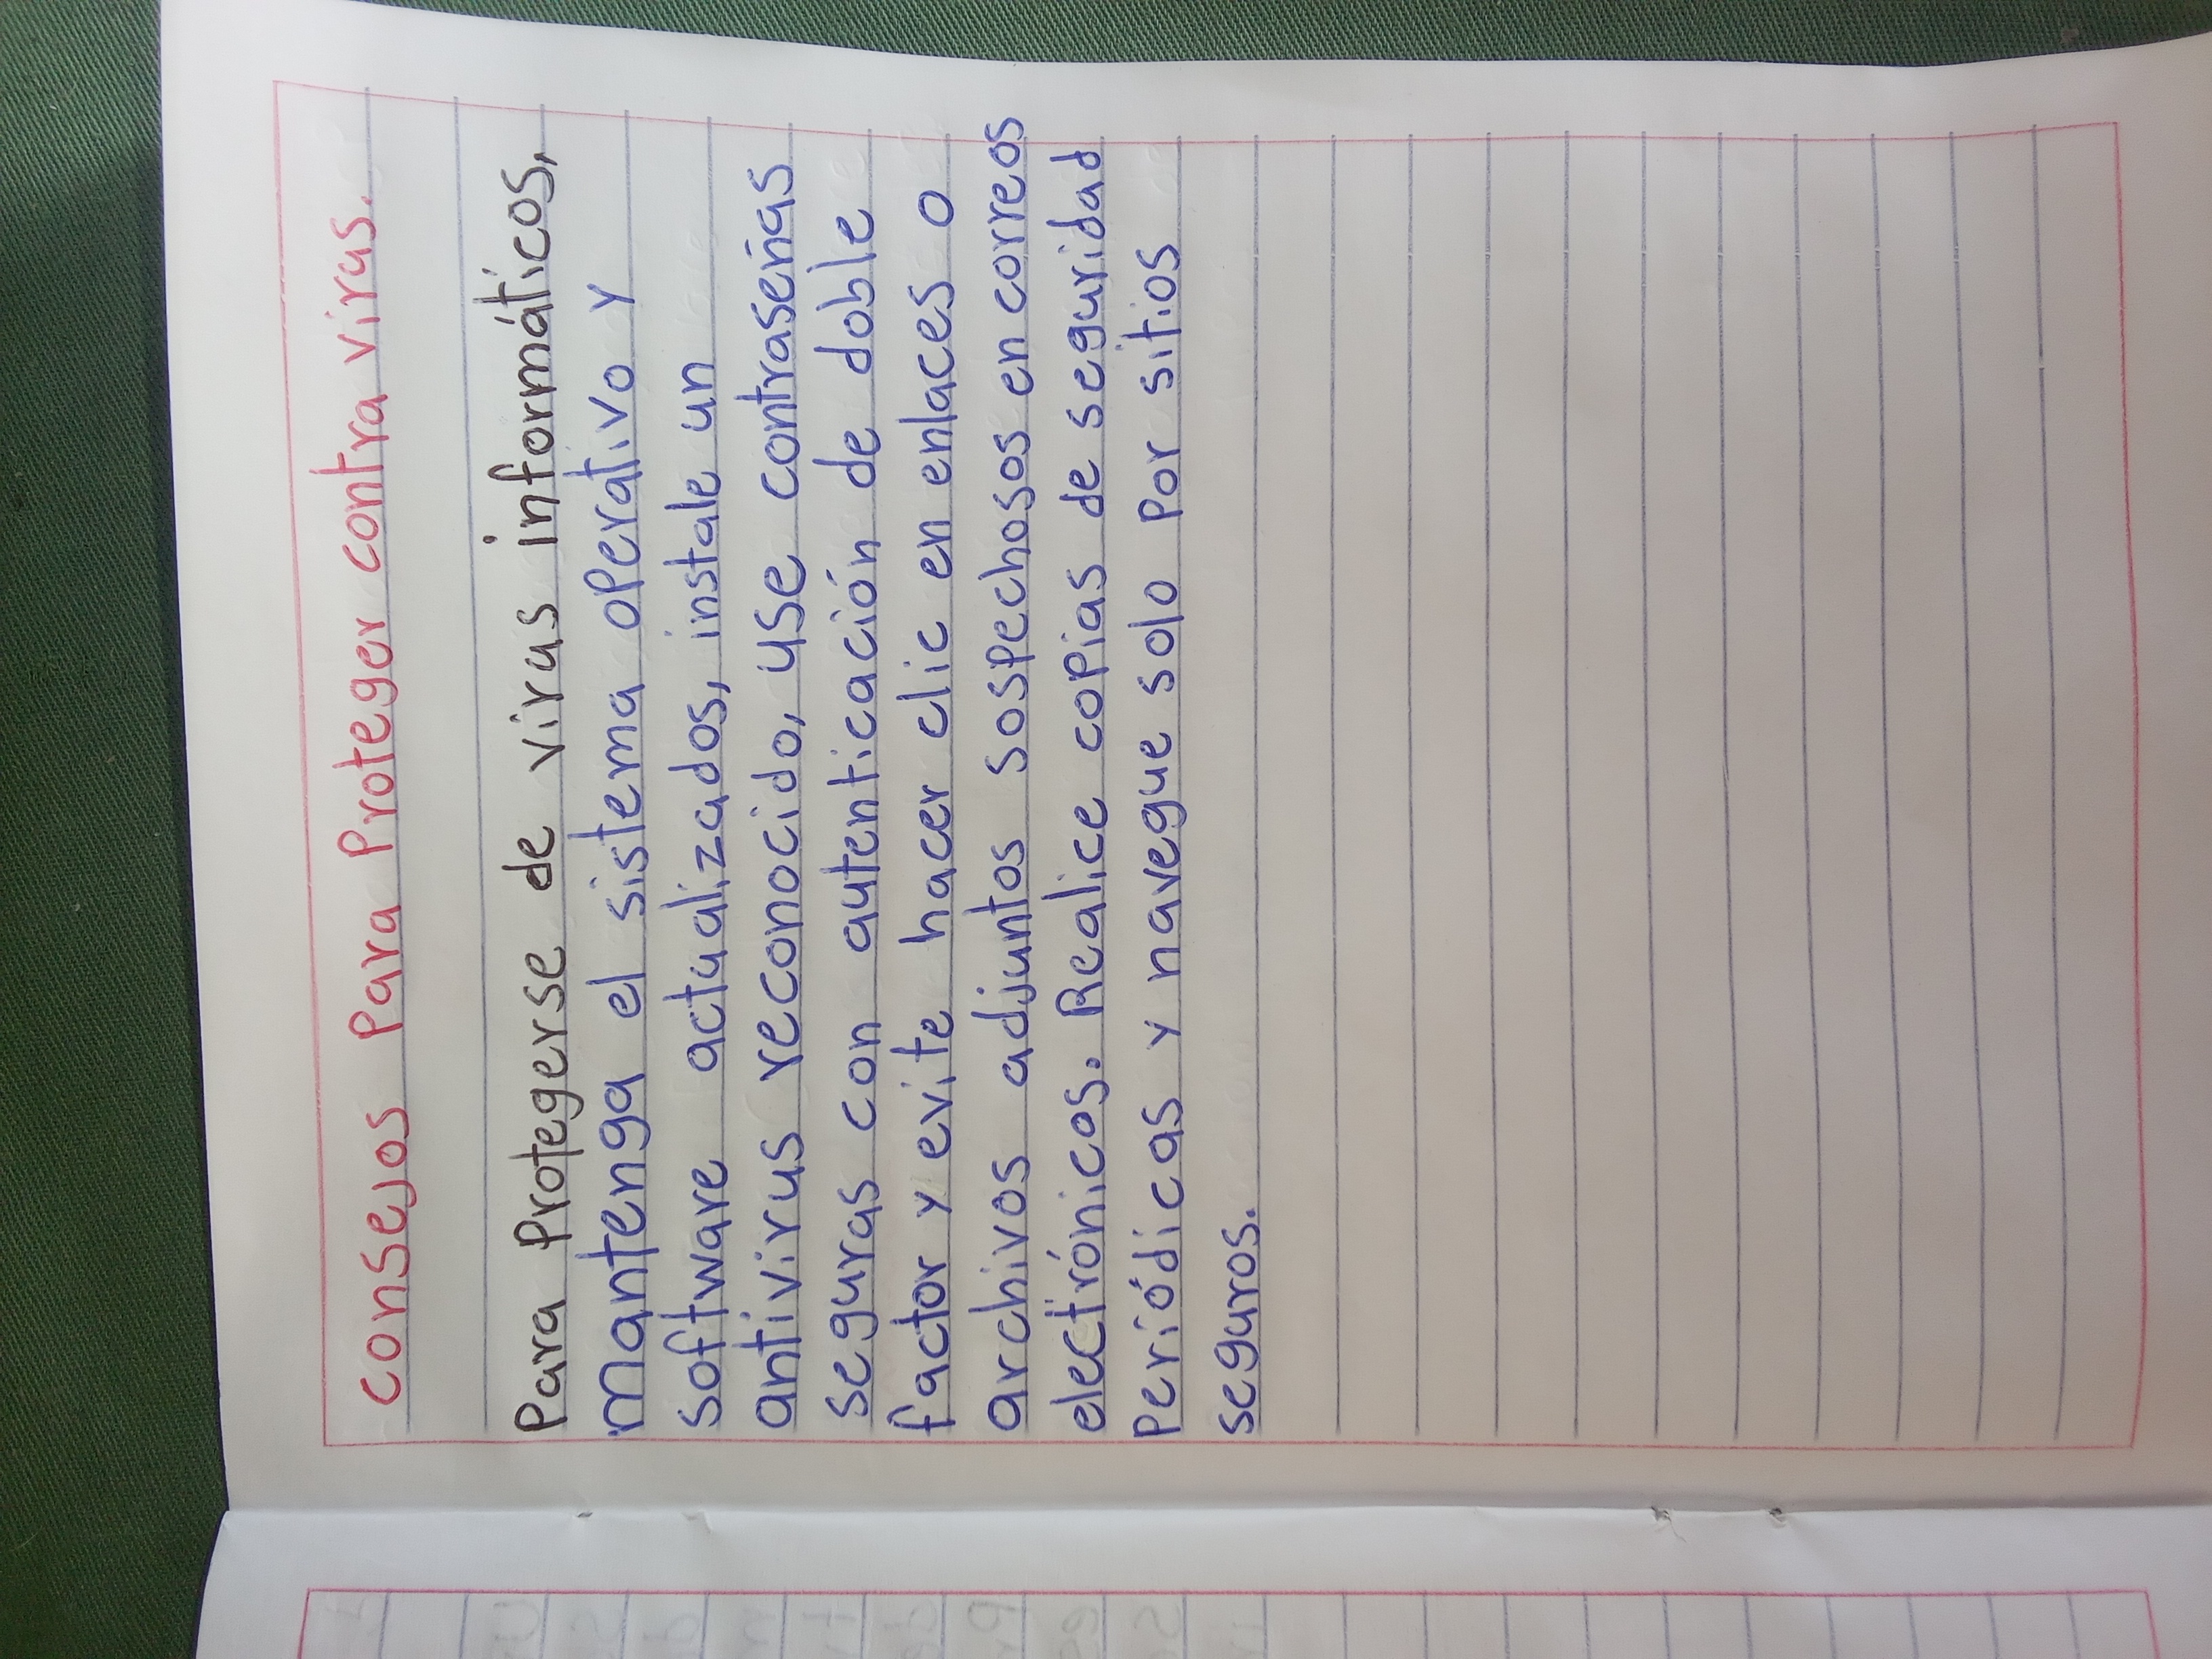 consejos Para Proteger contra virus.
Para Protegerse de virus informáticos,
mantenga el sistema operativo y
software actualizados, instale un
antivirus reconocido, use contraseñas
seguras con autenticación de doble
factor y evite hacer clic en enlaces o
archivos adjuntos sospechosos en correos
electrónicos. Realice copias de seguridad
Periódicas y navegue solo Por sitios
seguros.